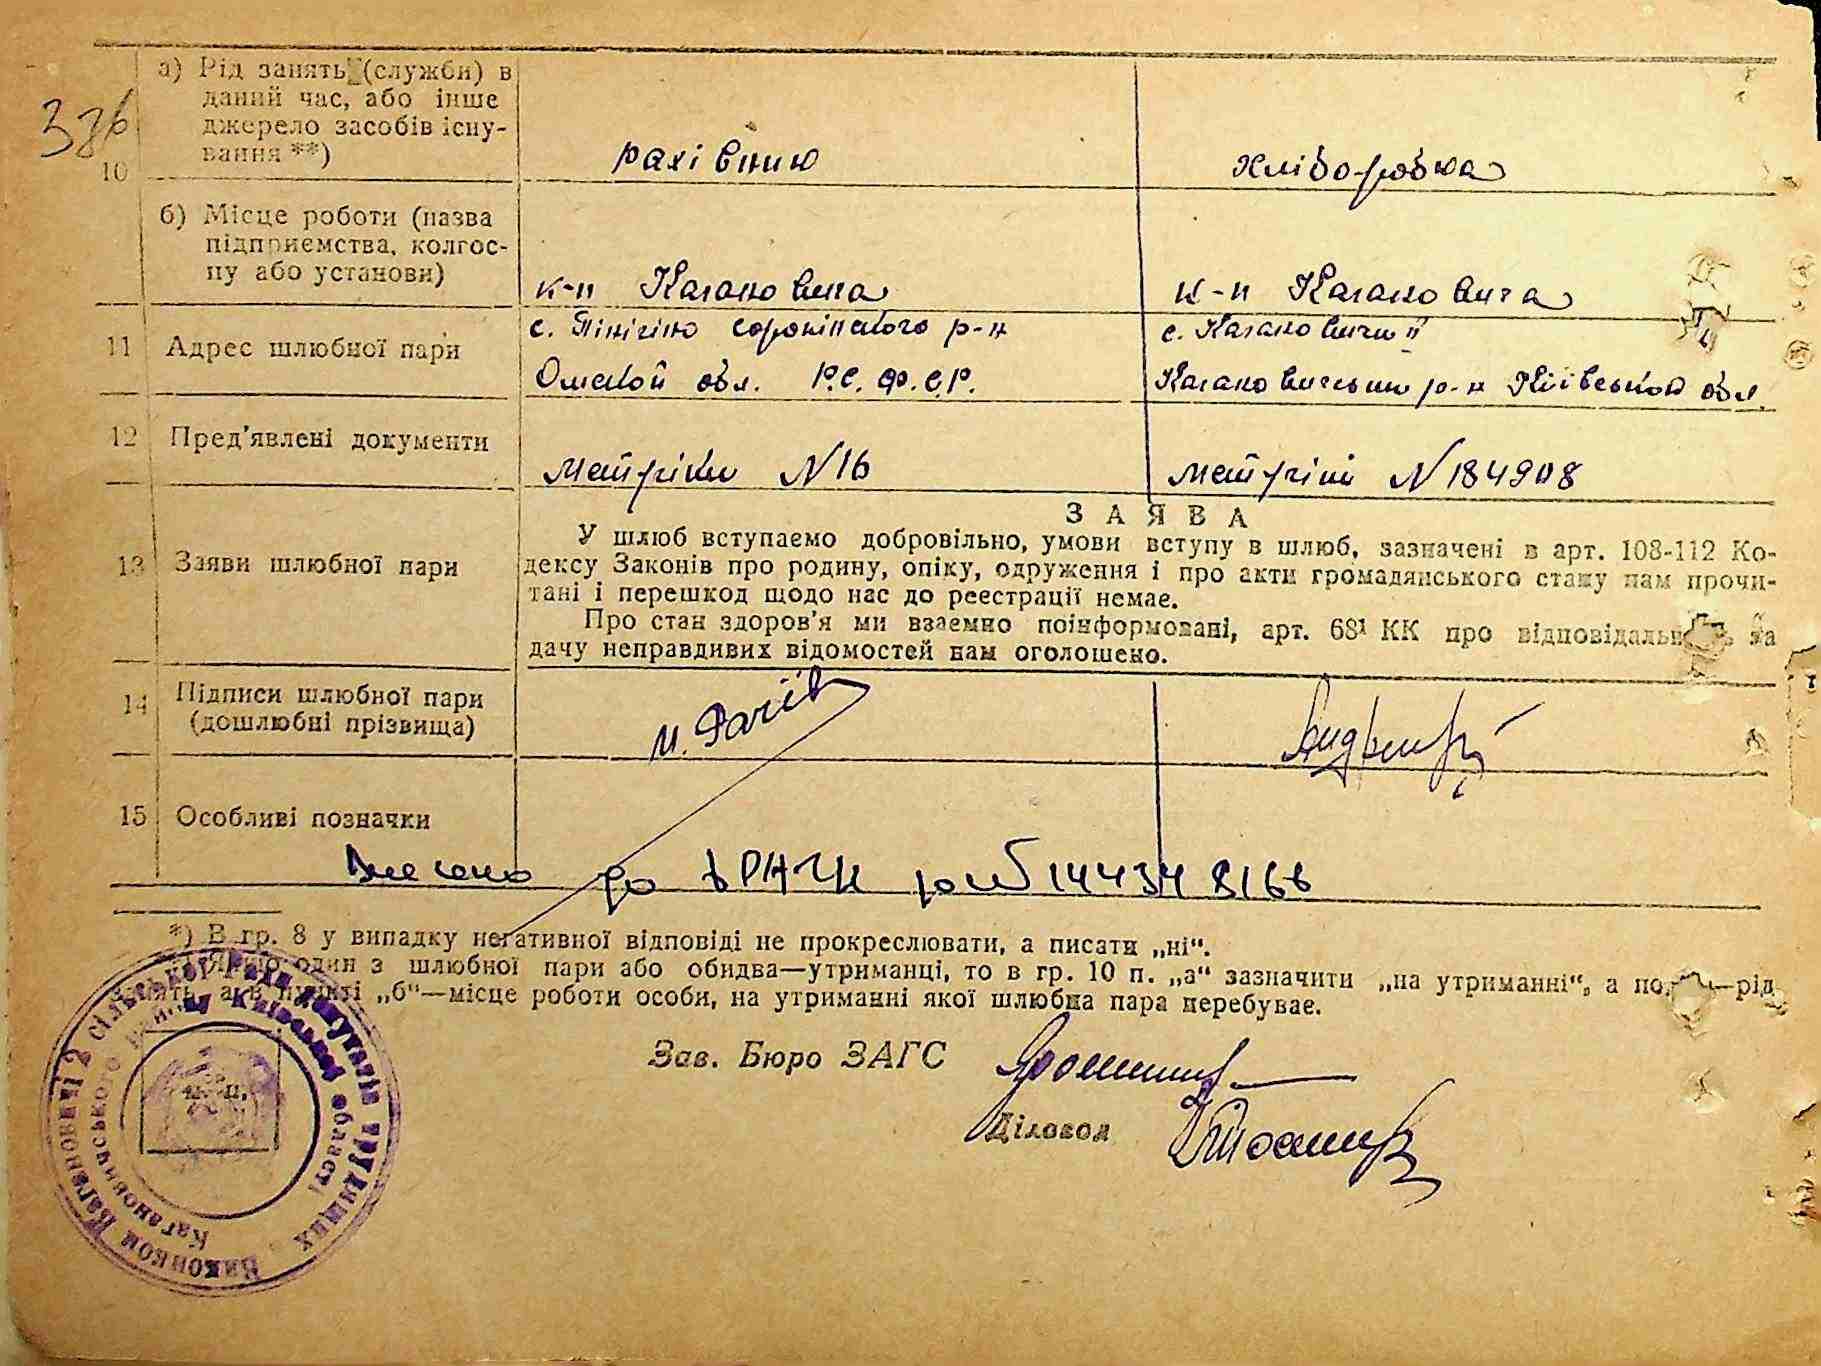 376
10
а) Рід занять (служби) в
даний час, або інше
джерело засобів існу-
вання **)
рахівник
хліборобка
б) Місце роботи (назва
підприємства, колгос-
пу або установи)
к-п Кагановича
к-п Кагановича
11 Адрес шлюбної пари
с. Пінігіно сорокінского р-н
Омской обл. Р.С.Ф.С.Р.
с. Кагановичи II
Кагановичський р-н Київської обл.
12 Пред'явлені документи
Метріки N 16
Метрікі N 184908
13 Заяви шлюбної пари
ЗАЯВА
У шлюб вступаємо добровільно, умови вступу в шлюб, зазначені в арт. 108-112 Ко-
дексу Законів про родину, опіку, одруження і про акти громадянського стану нам прочи-
тані і перешкод щодо нас до реєстрації немає.
Про стан здоров'я ми взаємно поінформовані, арт. 68¹ КК про відповідальність за
дачу неправдивих відомостей нам оголошено.
14 Підписи шлюбної пари
(дошлюбні прізвища)
15 Особливі позначки
Внесено до ДРАЦС 14434 8166
*) В гр. 8 у випадку негативної відповіді не прокреслювати, а писати „ні“.
Якщо один з шлюбної пари або обидва—утриманці, то в гр. 10 п. „а“ зазначити „на утриманні“, а —рід
занять, а в пункті „б“—місце роботи особи, на утриманні якої шлюбна пара перебуває.
Зав. Бюро ЗАГС
Діловод
Виконком Кагановичі 2 сільської Ради депутатів трудящих
Кагановичського р-ну Київської області